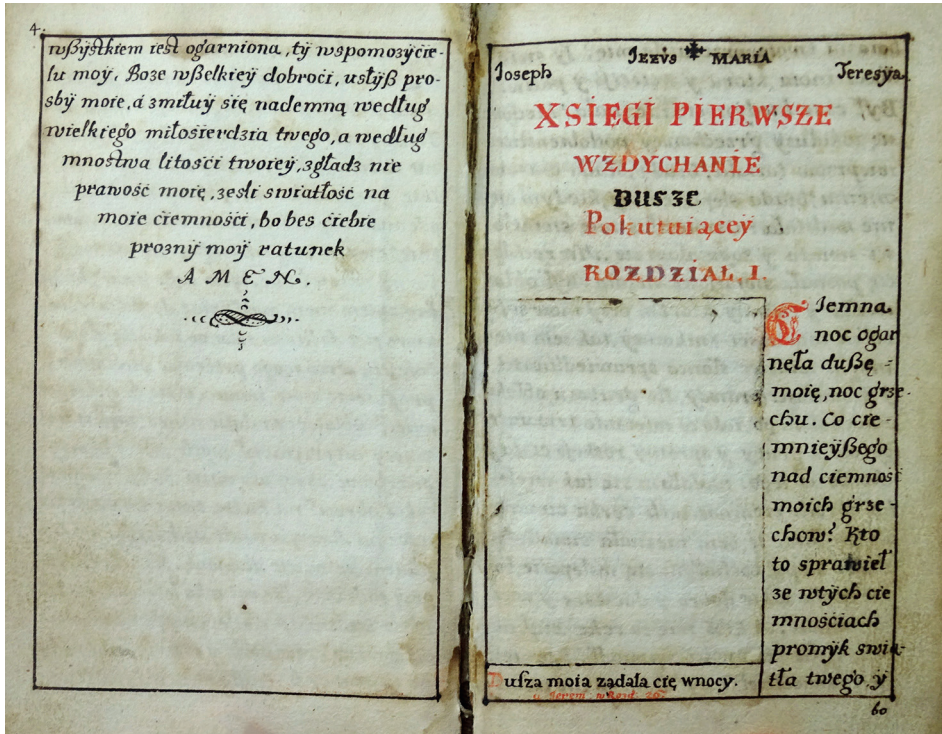 4.
wßystkiem iest ogarniona, tÿ wspomozÿcie-
lu moÿ, Boze wßelkieÿ dobroci, usłÿß pro-
sbÿ moie, á zmiłuÿ się nademną według
wielkiego miłosierdzia twego, a według
mnostwa litosći tworeÿ, zgładz nie
prawość moię, zesli swiatłość na
moie ciemnosći, bo bes ciebie
proznÿ moÿ ratunek
AMEN.
Jezus Maria
Joseph Teresÿa
XSIEGI PIERWSZE
WZDYCHANIE
DUSZE
Pokutuiąceÿ
ROZDZIAŁ I.
Ciemna
noc ogar
nęła dußę -
moię, noc grze-
chu. Co cie-
mnieÿßego
nad ciemnosć
moich grze-
chow? Kto
to sprawieł
ze wtÿch cie
mnościach
promÿk swia-
tła twego, ÿ
Dusza moia ządała cię wnocy.
bo